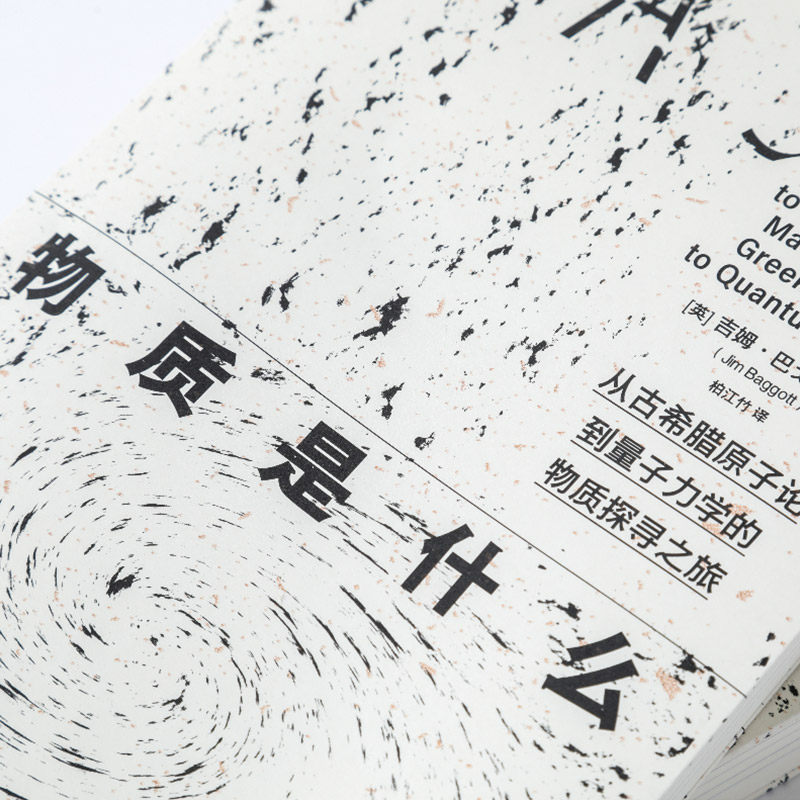 to
Gree
to Quantu
[英] 吉姆·巴
(Jim Baggott)
柏江竹 译
从古希腊原子论
到量子力学的
物质探寻之旅
物质是什么